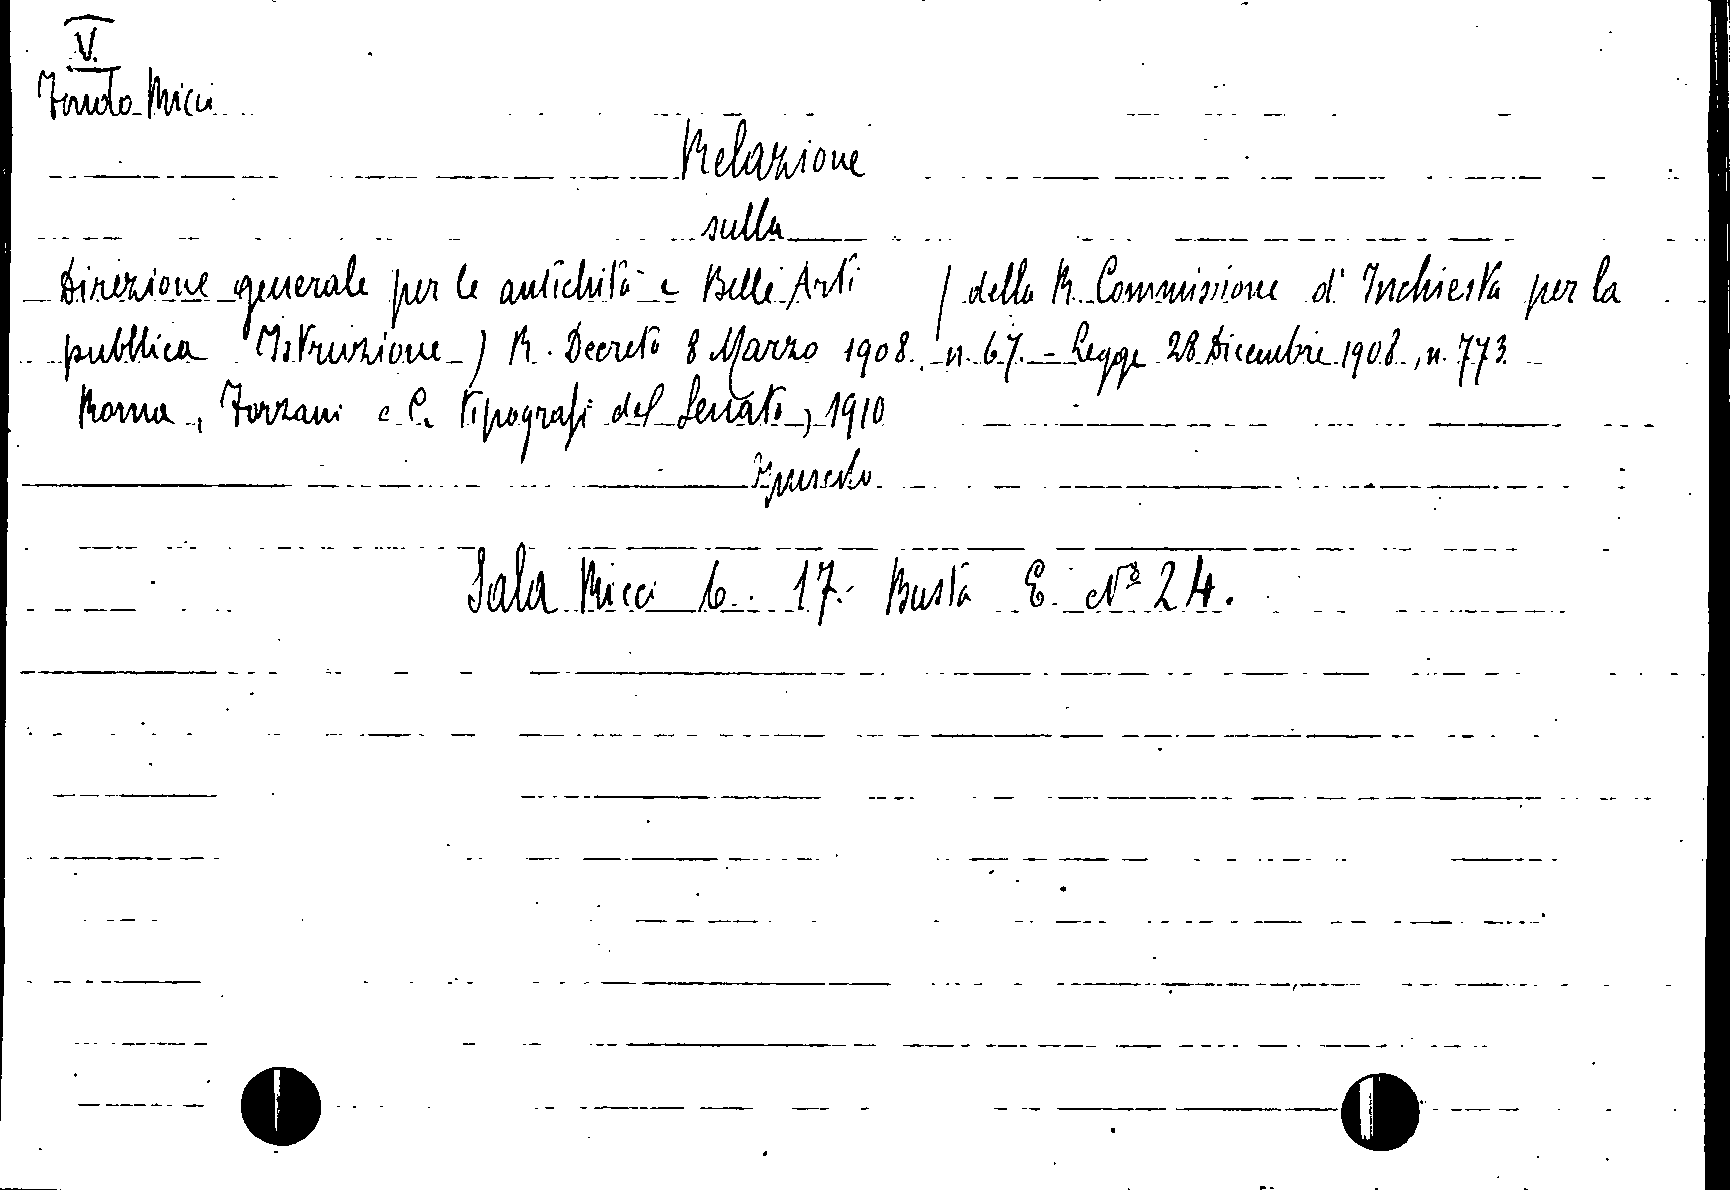 V.
Fondo Ricci
Relazione
sulla
Direzione generale per le antichità e Belle Arti (della R. Commissione d'Inchiesta per la
pubblica Istruzione) R. Decreto 8 Marzo 1908. n. 67. - Legge 28 Dicembre 1908, n. 773.
Roma, Forzani e C. tipografi del Senato, 1910
Sala Ricci 6. 17. Busta E. Nº 24.